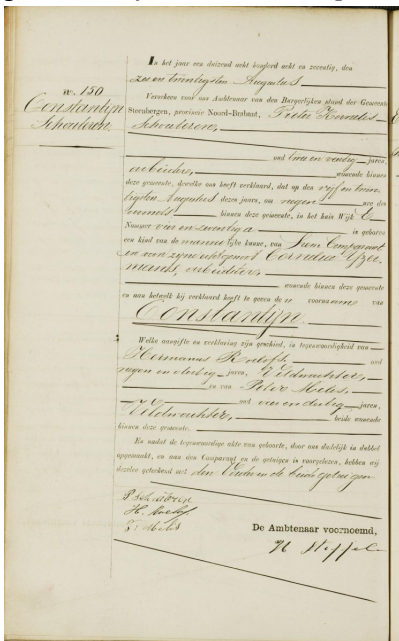 N. 150
Constantyn
Schouteren
In het jaar een duizend acht honderd acht en zeventig, den
zes en twintigsten Augustus
Verscheen voor ons Ambtenaar van den Burgerlijken stand der Gemeente
Steenbergen, provincie Noord-Brabant, Pieter
Schouteren,
oud twee en veertig jaren,
arbeider, wonende binnen
deze gemeente, dewelke ons heeft verklaard, dat op den vijf en twin
tigsten Augustus dezes jaars, om negen ure des
binnen deze gemeente, in het huis Wijk E
Nummer is geboren
een kind van de mannelijke kunne, van hem Comparant
en van zijne echtgenoot Cornelia Yzer
mans, arbeidster,
wonende binnen deze gemeente
en aan hetwelk hij verklaard heeft te geven de voornaam van
Constantyn.
Welke aangifte en verklaring zijn geschied, in tegenwoordigheid van
Hermanus Roelofs, oud
negen en veertig jaren, Veldwachter,
en van Peter Melis,
oud jaren,
Veldwachter, beide wonende
binnen deze gemeente.
En nadat de tegenwoordige akte van geboorte, door ons dadelijk in dubbel
opgemaakt, en aan den Comparant en de getuigen is voorgelezen, hebben wij
dezelve geteekend met den Vader en de beide getuigen
P Schouteren
H. Roelofs
P. Melis
De Ambtenaar voornoemd,